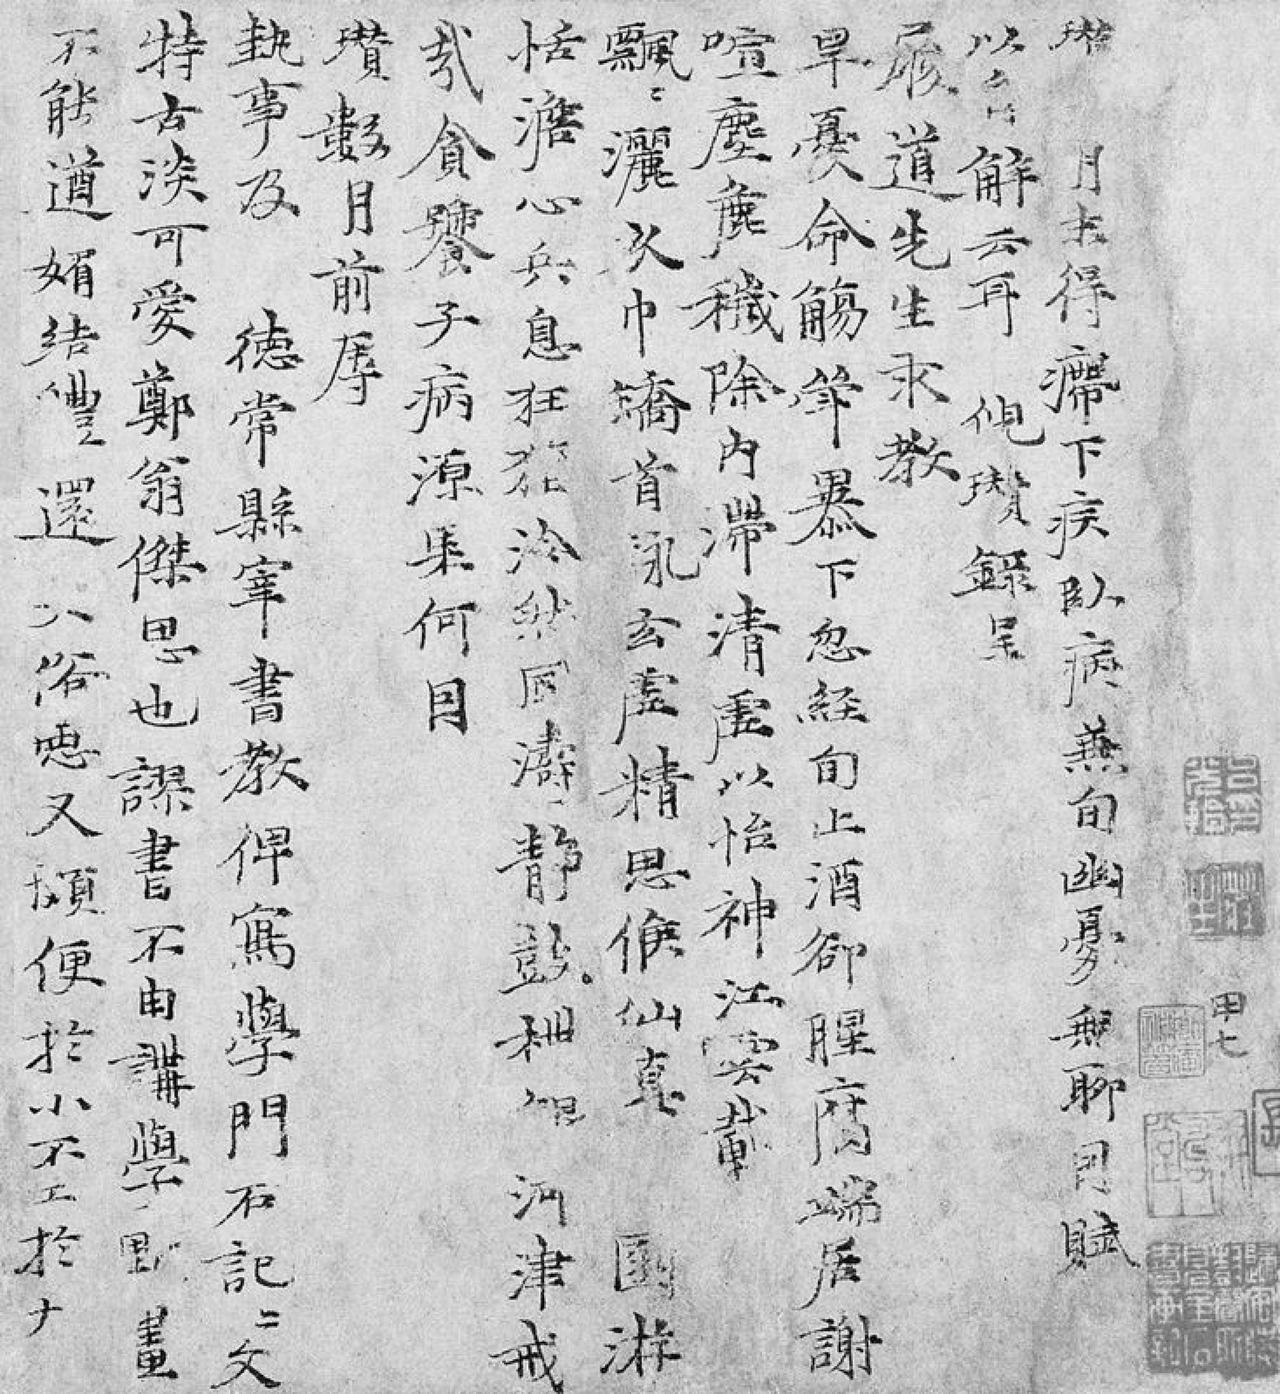 瓚　月末得癤下疾臥病兼旬幽憂無聊因賦
以自解云耳　倪瓚錄呈
履道先生求教
旱憂命觴筆暴下忽經旬止酒卻腥腐端居謝
喧塵麄穢除內滯清虛以怡神江雲載
飄〻灑衣巾矯首氶玄虛精思候仙真　圂游
恬澹心兵息狂　泠然回濤靜鼓枻　河津戒
哉貪饕子病源果何因
瓚數月前辱
執事及　德常縣宰書教俾寫學門石記〻文
特古淡可愛鄭翁傑思也謬書不由講學點畫
不能遒媚結體還　俗惡又頗便於小不工於大